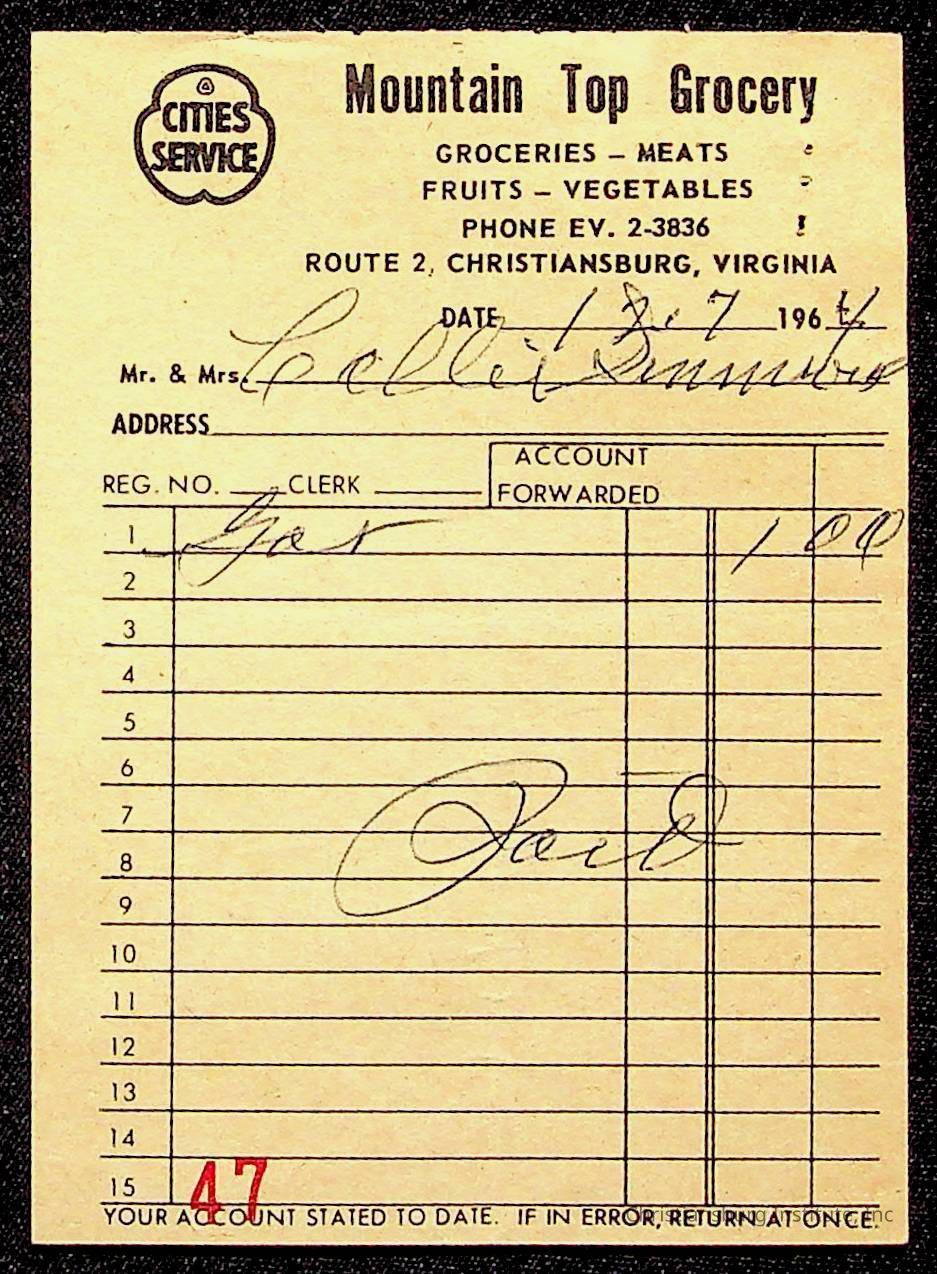 CITIES
SERVICE
Mountain Top Grocery
GROCERIES – MEATS
FRUITS – VEGETABLES
PHONE EV. 2-3836
ROUTE 2, CHRISTIANSBURG, VIRGINIA
DATE 196 4
Mr. & Mrs. Callie
ADDRESS
ACCOUNT
REG. NO. CLERK FORWARDED
1 Gas 1 00
2
3
4
5
6
7
8 Paid
9
10
11
12
13
14
15
47
YOUR ACCOUNT STATED TO DATE. IF IN ERROR, RETURN AT ONCE.
Christiansburg Institute, Inc